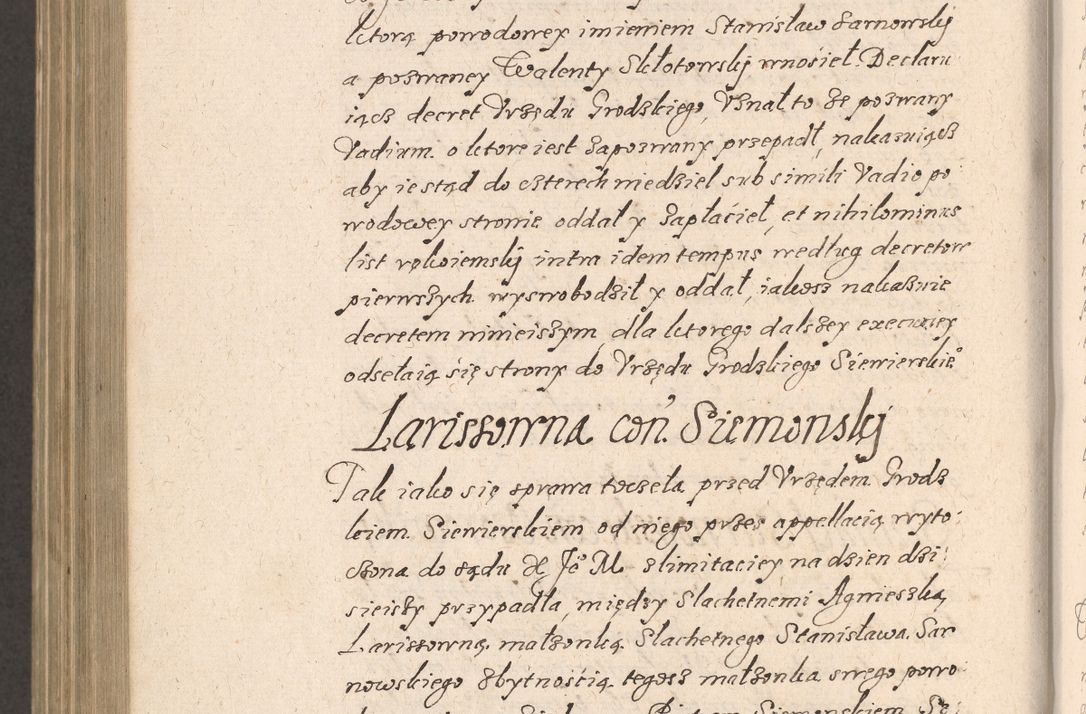 ktorą powodowey imieniem Stanisław Sarnowskij
a pozwaney Walenty Skłotowskij wnosieł. Declaru
iącz decret Vrzędu Grodzkiego, Vznał to że pozwany
Vadium o ktore iest zapozwany przepadł, nakazuiącz
aby ie stąd do czterech niedziel sub simili Vadio po
wodowey stronie oddał y zapłacieł, et nihilominus
list rękoiemskij intra idem tempus według decretow
pierwszych wyswobodził y oddał, iakosz nakazuie
decretem ninieiszym dla ktorego dalszey execuciey
odsełaią się strony do Vrzędu Grodzkiego Siewierskie°
Larissowna con̄. Siemonskij
Tak iako się sprawa toczeła przed Vrzędem Grodz
kiem Siewierskiem od niego przes appellacią wyto
czona do sądu X Je° M. z limitaciey na dzien dzi
sieiszy przypadła, między Slachetnemi Agnieszką
Larissowną małżonką Slachetnego Stanisława Sar
nowskiego z bytnością tegosz małżonka swego powo
Siemonskiem Se